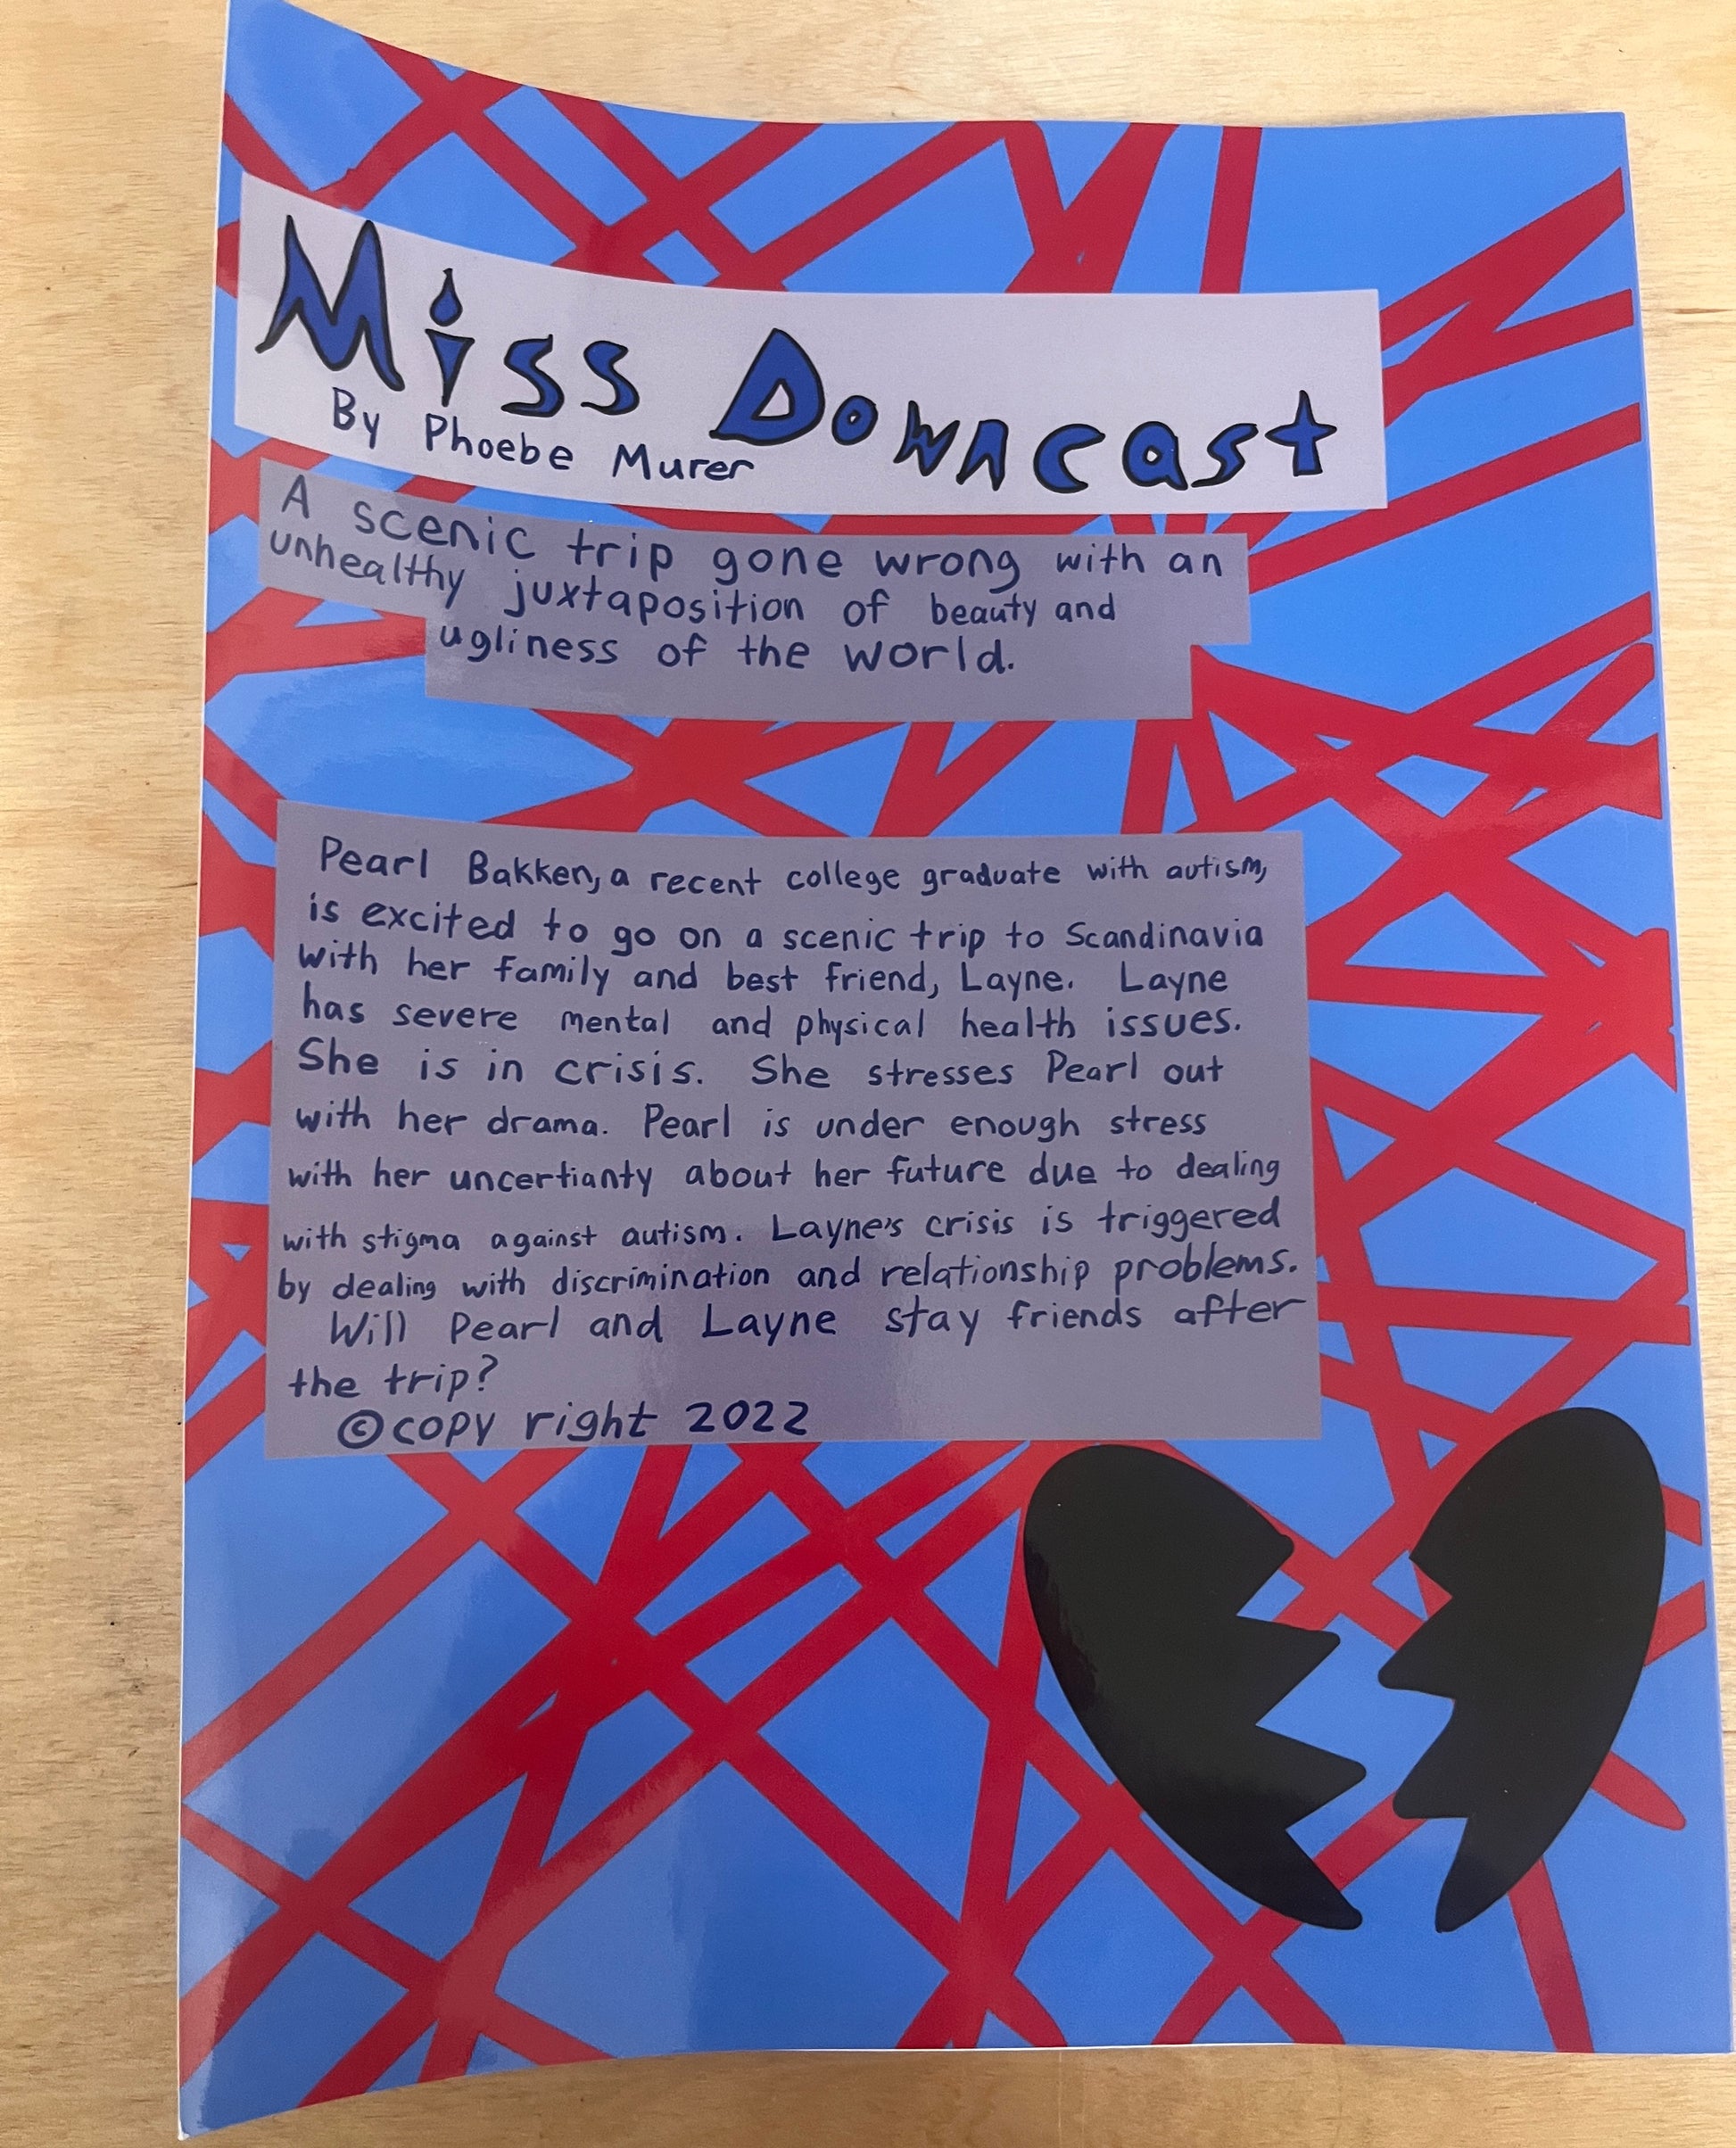 Miss Downcast
By Phoebe Murer
A scenic trip gone wrong with an
unhealthy juxtaposition of beauty and
ugliness of the world.
Pearl Bakken, a recent college graduate with autism,
is excited to go on a scenic trip to Scandinavia
with her family and best friend, Layne. Layne
has severe mental and physical health issues.
She is in crisis. She stresses Pearl out
with her drama. Pearl is under enough stress
with her uncertianty about her future due to dealing
with stigma against autism. Layne's crisis is triggered
by dealing with discrimination and relationship problems.
Will Pearl and Layne stay friends after
the trip?
©copy right 2022